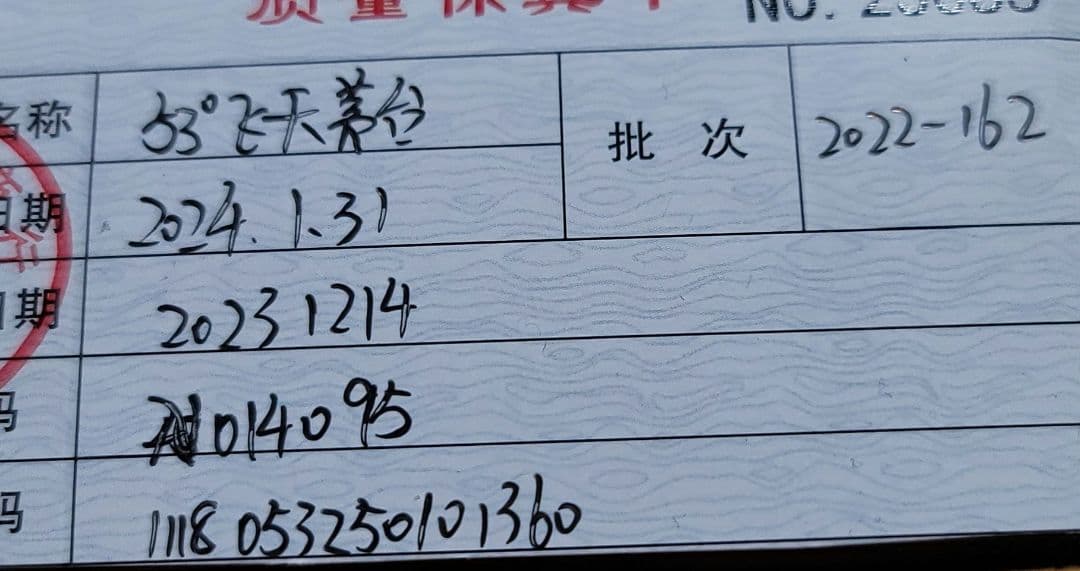 质量保真卡 NO.
名称 53°飞天茅台 批次 2022-162
日期 2024.1.31
日期 20231214
码 014095
码 1118053250101360